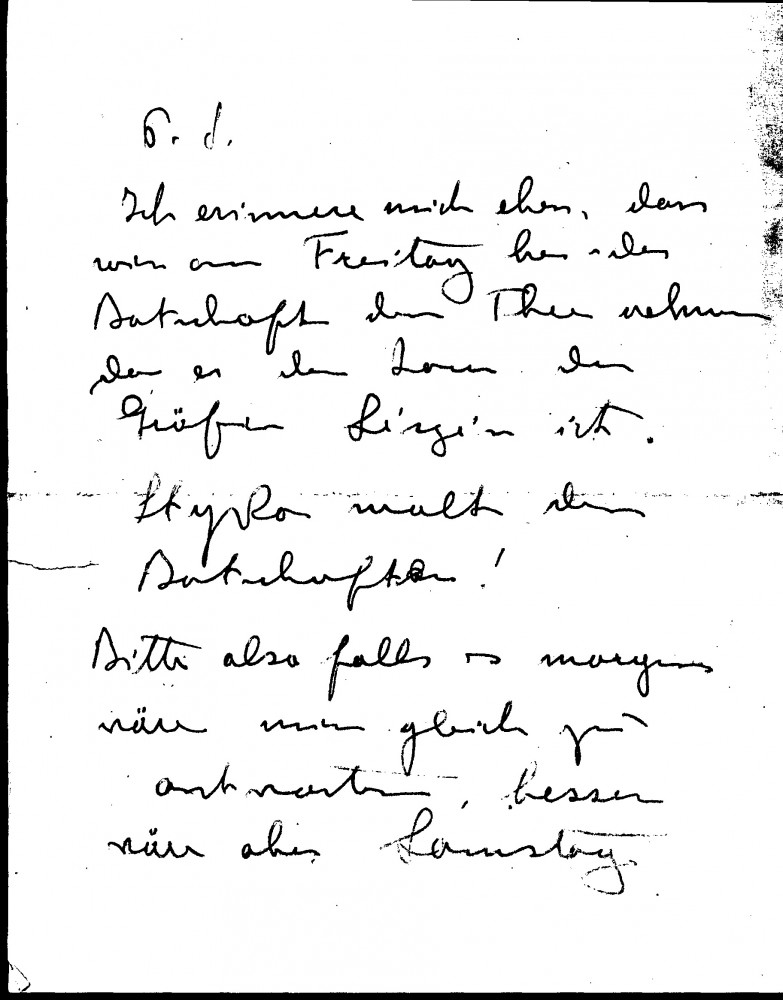 Ich erinnere mich eben, dass
wir am Freitag bei der
Botschaft den Thee nehmen
da es der der
Gräfin ist.
Styka malt den
Botschafter!
Bitte also falls es morgen
wäre mir gleich zu
antworten, besser
wäre aber Samstag